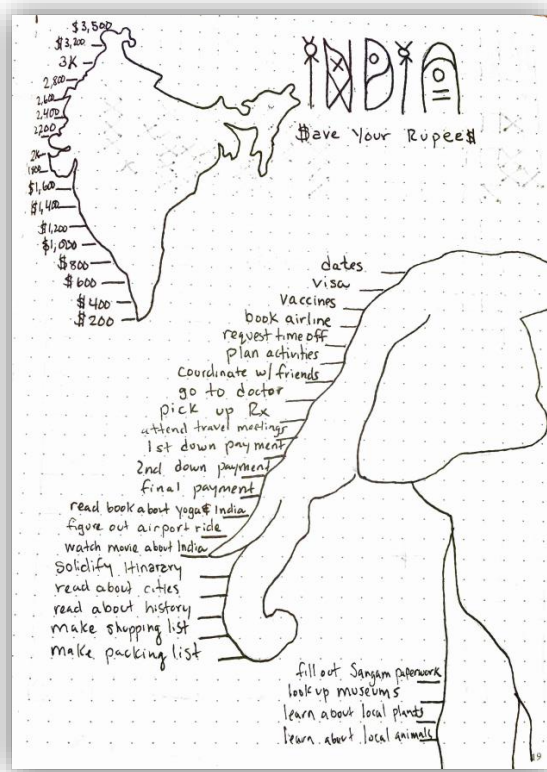 $3,500
$3,200
3K
2,800
2,600
2,400
2200
2K
1800
$1,600
$1,400
$1,200
$1,000
$800
$600
$400
$200
INDIA
$ave Your Rupee$
dates
visa
vaccines
book airline
request time off
plan activities
coordinate w/friends
go to doctor
pick up Rx
attend travel meetings
1st down payment
2nd down payment
final payment
read book about yoga & India
figure out airport ride
watch movie about India
Solidify Itinarary
read about cities
read about history
make shopping list
make packing list
fill out Sangam paperwork
look up museums
learn about local plants
learn about local animals
19